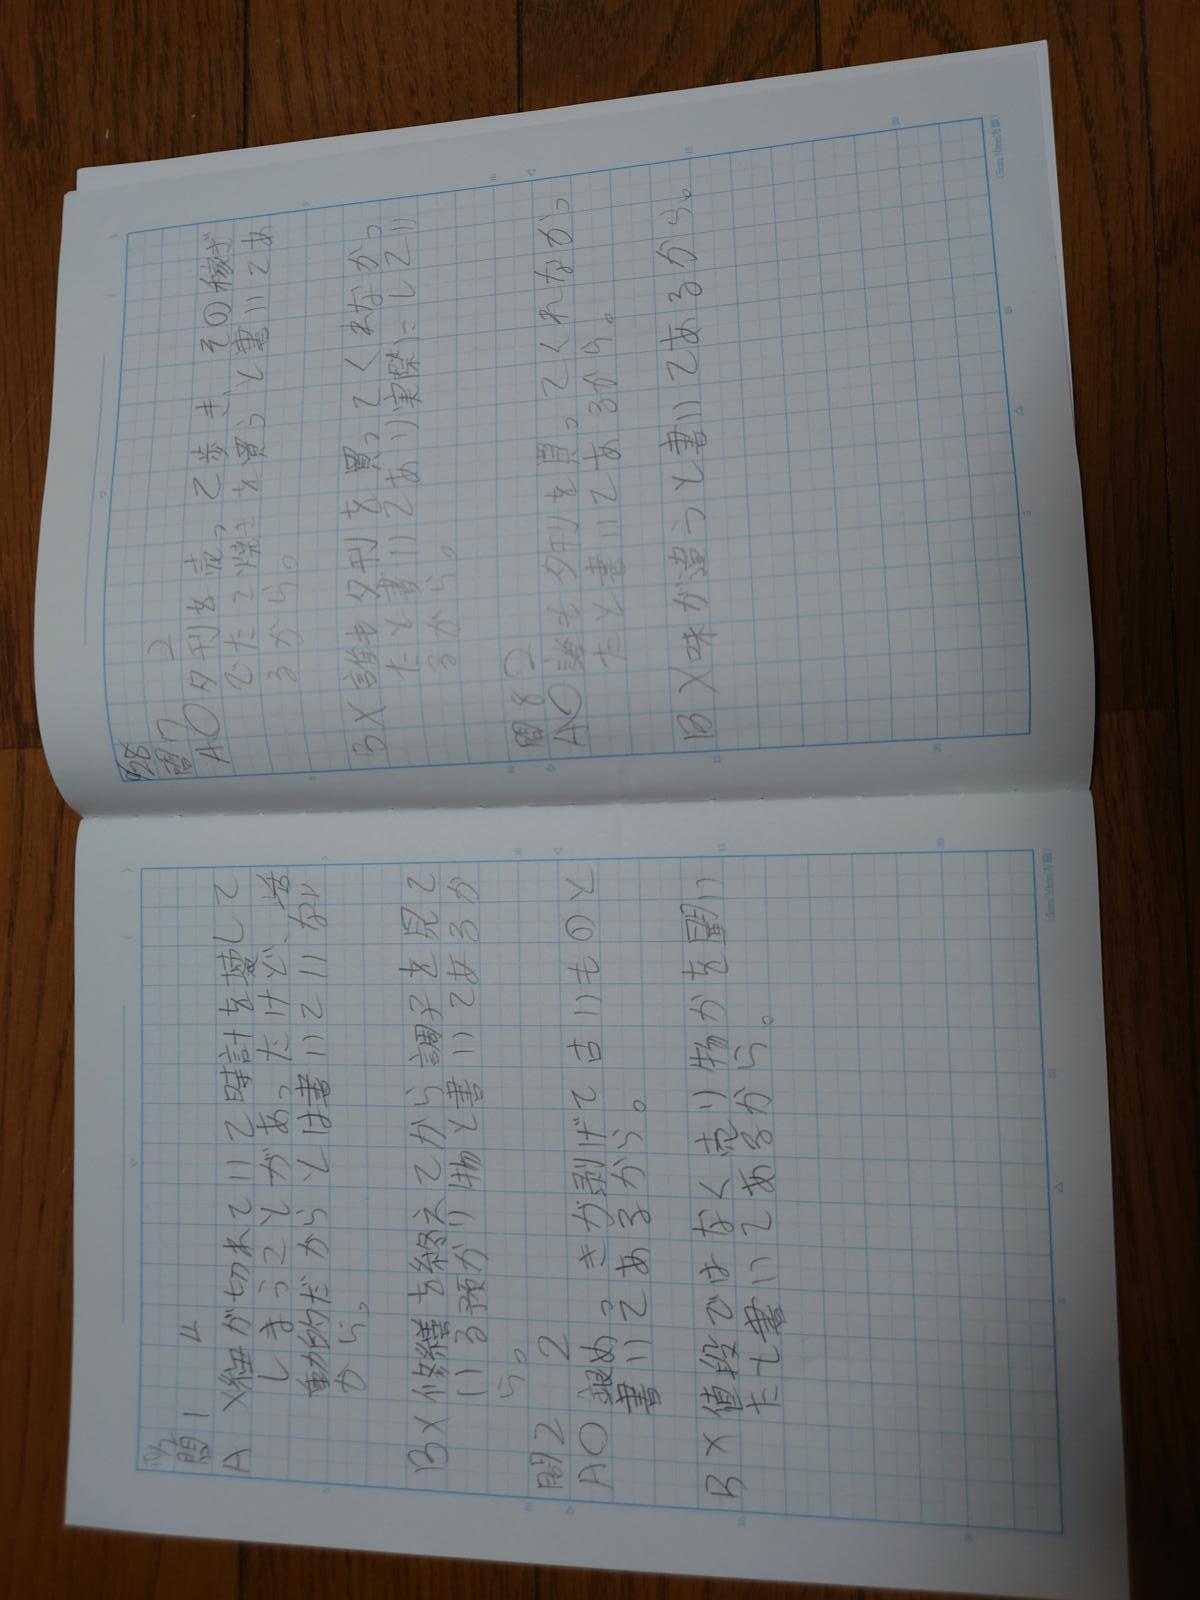 9/28
問7 2
A○夕刊を売って歩き、その稼ぎ
でたこ焼きを買うと書いてあ
るから。
B×誰も夕刊を買ってくれなかっ
たと書いてあり実際にしてい
るから。
問8 2
A○誰も夕刊を買ってくれなかっ
たと書いてあるから。
B×味が違うと書いてあるから。
10/5
問1 4
A ×紐が切れていて時計を壊して
しまうことがあったけど、
動的だからとは書いていない
から。
B×修繕を終えてから調子を見て
いる預かり物と書いてあるか
ら。
問2 2
A○銀めっきが剥げて古いものと
書いてあるから。
B×値段ではなく売り物かを聞い
たと書いてあるから。
(5mm 10mm方眼)
(5mm 10mm方眼)